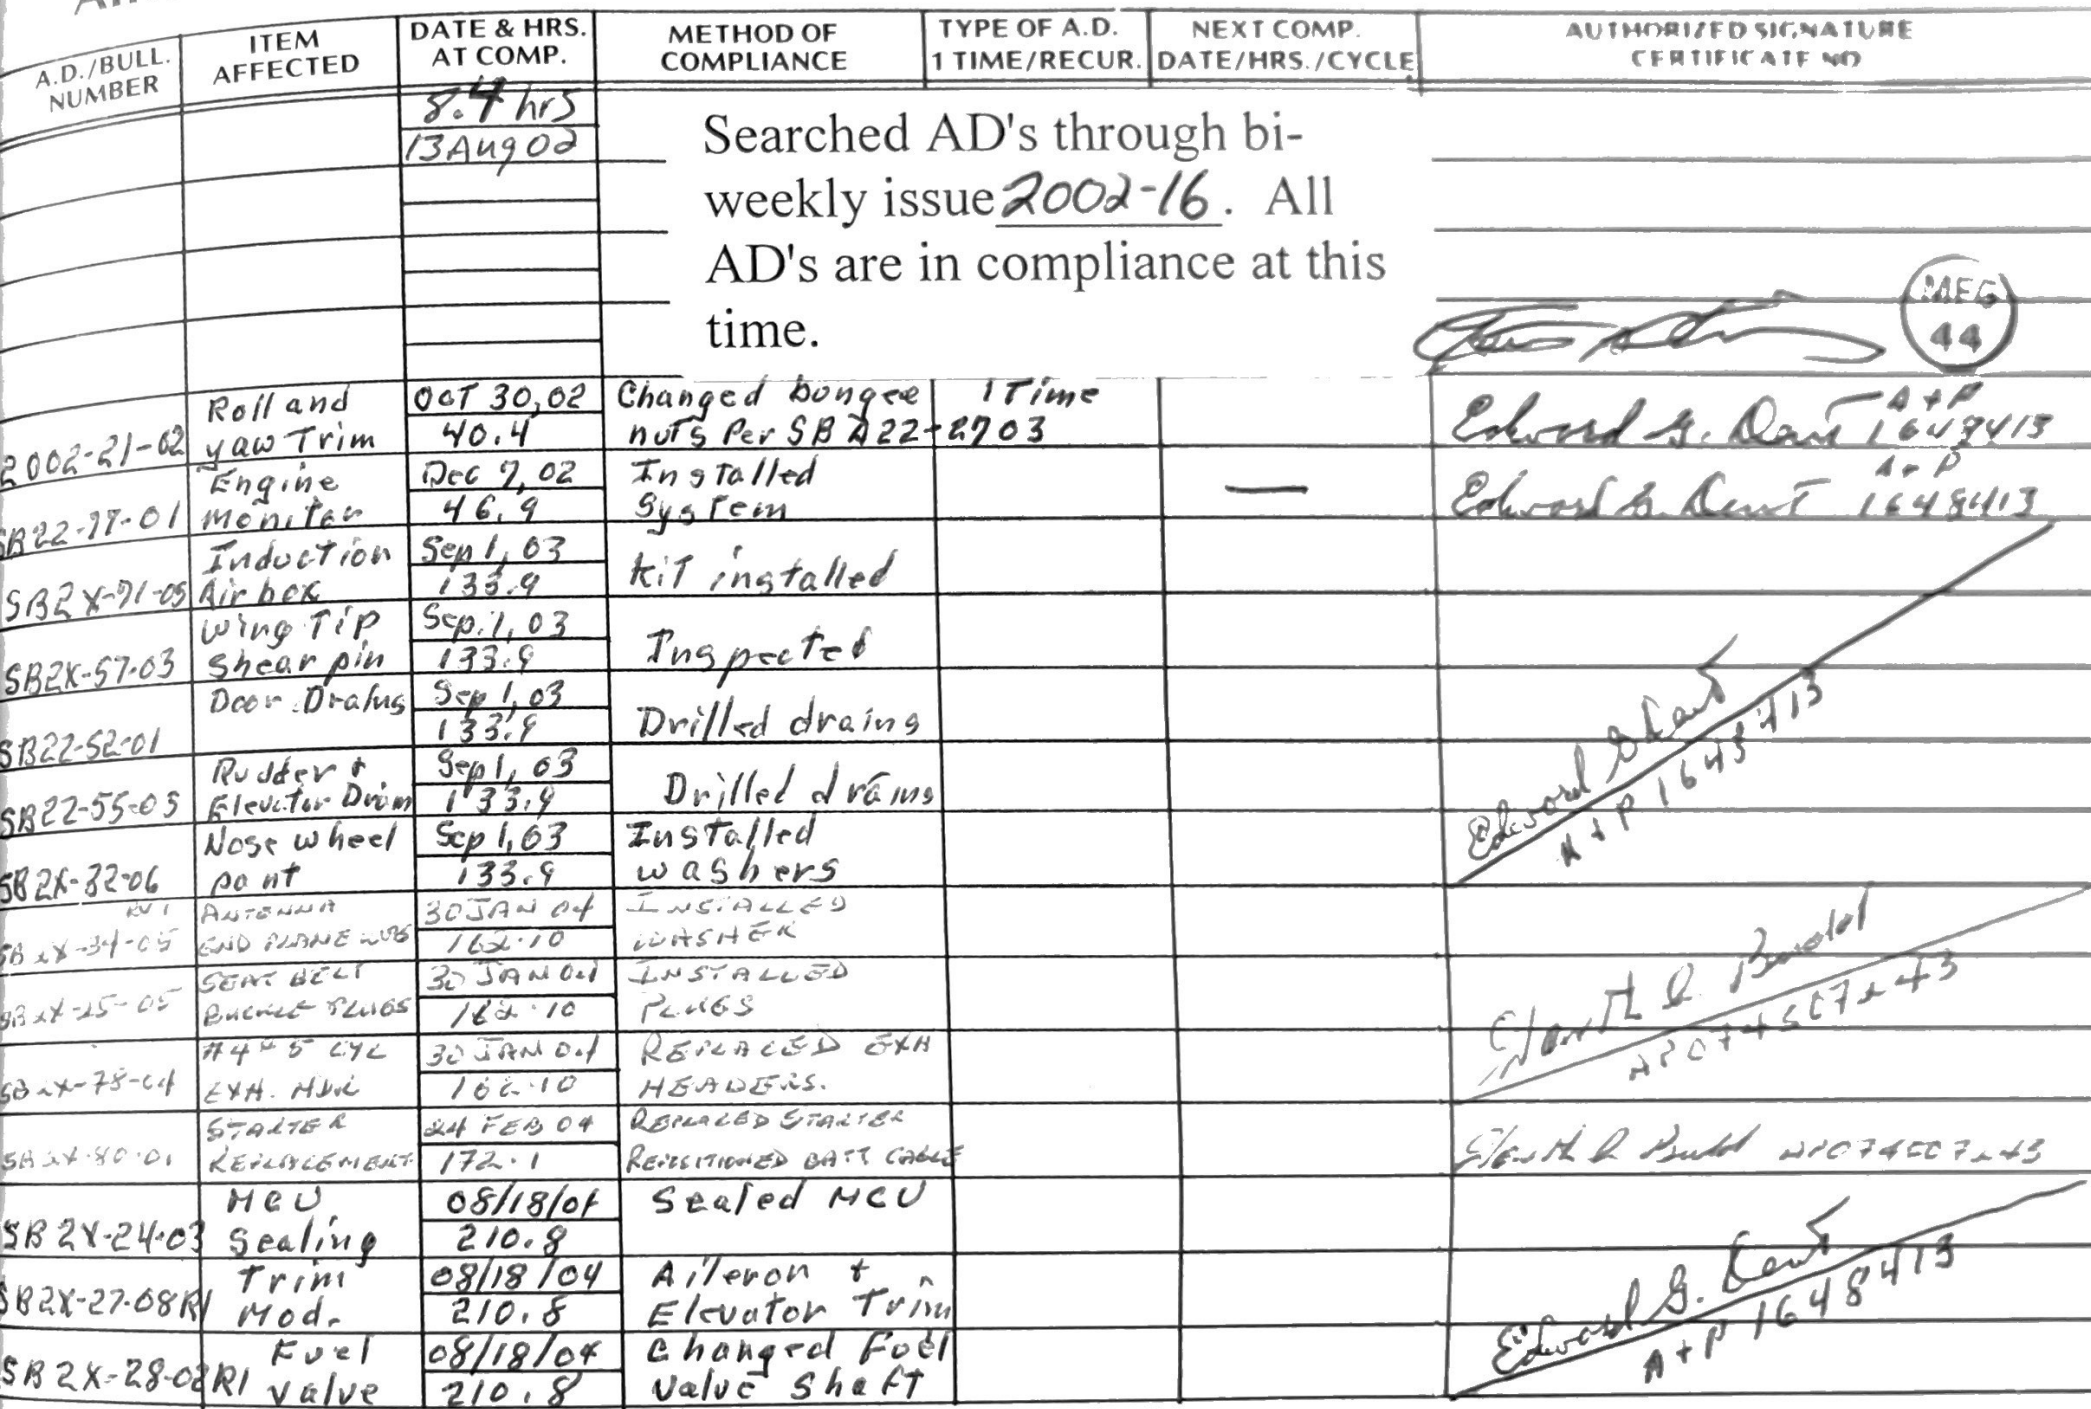 A.D./BULL. NUMBER
ITEM AFFECTED
DATE & HRS. AT COMP.
METHOD OF COMPLIANCE
TYPE OF A.D. 1 TIME/RECUR.
NEXT COMP. DATE/HRS./CYCLE
AUTHORIZED SIGNATURE CERTIFICATE NO
8.4 hrs
13 Aug 02
Searched AD's through bi-
weekly issue 2002-16. All
AD's are in compliance at this
time.
MFG
44
2002-21-02
Roll and
yaw Trim
OCT 30,02
40.4
Changed bungee
nuts Per SB A22-2703
1 Time
Edward G. Dent A+P
1648413
SB22-77-01
Engine
monitor
Dec 7, 02
46.9
Installed
System
—
Edward G. Dent A+P
1648413
SB2X-71-05
Induction
Air box
Sep 1, 03
133.9
kit installed
SB2X-57-03
Wing Tip
Shear pin
Sep. 1, 03
133.9
Inspected
SB22-52-01
Door Drains
Sep 1, 03
133.9
Drilled drains
SB22-55-05
Rudder +
Elevator Drain
Sep 1, 03
133.9
Drilled drains
SB2X-32-06
Nose wheel
pant
Sep 1, 03
133.9
Installed
washers
Edward G Dent
A+P 1648413
SB2X-34-05
ANTENNA
30 JAN 04
162.10
INSTALLED
WASHER
SB2X-25-05
SEAT BELT
BUCKLE PLUGS
30 JAN 04
162.10
INSTALLED
PLUGS
SB2X-78-04
#4 & 5 CYL
EXH. HDR
30 JAN 04
162.10
REPLACED EXH
HEADERS.
SB2X-80-01
STARTER
REPLACEMENT
24 FEB 04
172.1
REPLACED STARTER
REPOSITIONED BATT CABLE
SB 2X-24-03
MCU
Sealing
08/18/04
210.8
Sealed MCU
SB2X-27-08R1
Trim
Mod.
08/18/04
210.8
Aileron +
Elevator Trim
SB 2X-28-02R1
Fuel
Valve
08/18/04
210.8
Changed Fuel
Valve Shaft
Edward G. Dent
A+P 1648413